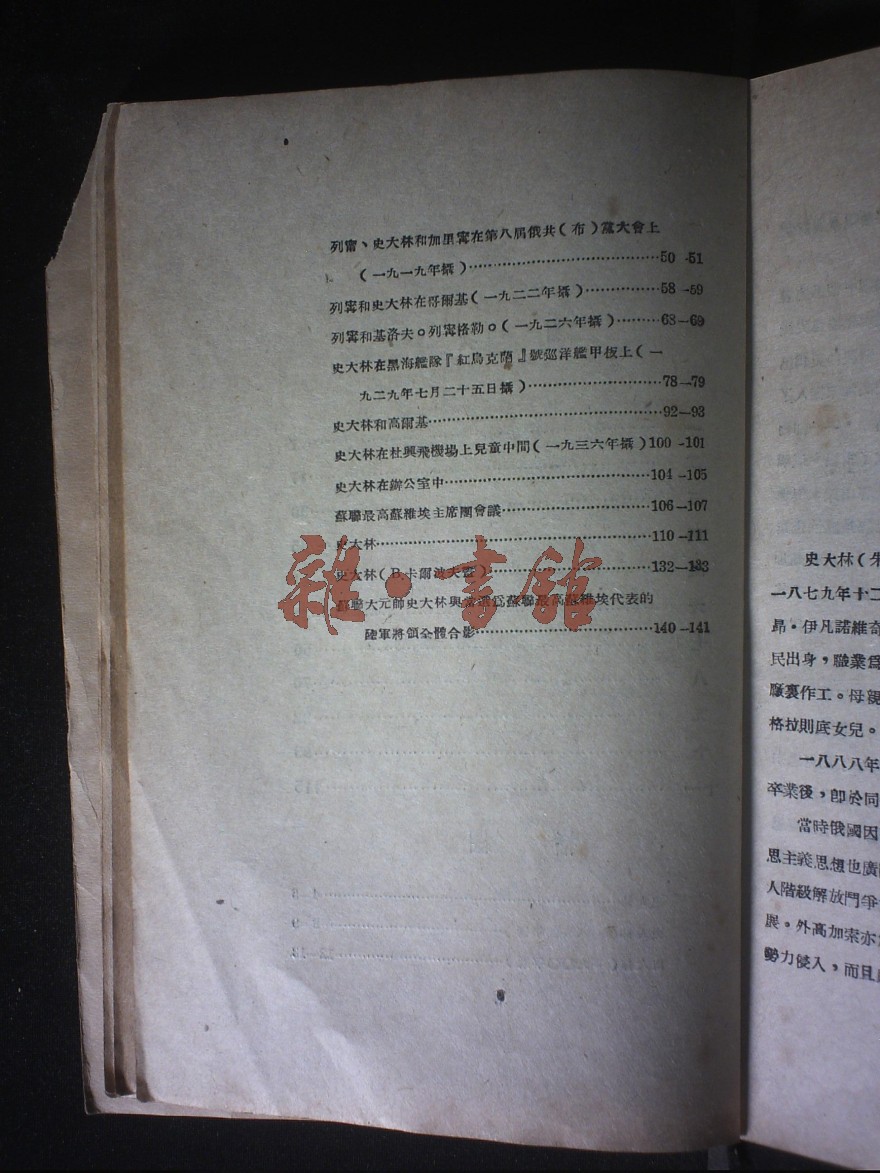 列甯、史大林和加里寗在第八屆俄共(布)黨大會上
(一九一九年攝)……………………………50 -51
列寗和史大林在哥爾基(一九二二年攝)……………58 -59
列寗和基洛夫。列寗格勒。(一九二六年攝)………68—69
史大林在黑海艦隊『紅烏克蘭』號巡洋艦甲板上(一
九二九年七月二十五日攝)……………………78—79
史大林和高爾基……………………………………92—93
史大林在杜興飛機塲上兒童中間(一九三六年攝)100 -101
史大林在辦公室中………………………………104 -105
蘇聯最高蘇維埃主席團會議………………………106—107
史大林……………………………………………110 -111
史大林(B.卡爾波夫 )…………………………132—133
蘇聯大元帥史大林與當選爲蘇聯最高蘇維埃代表的
陸軍將領全體合影…………………………140 -141
雜·書館
史大林(朱
一八七九年十二
昂·伊凡諾維奇
民出身,職業爲
廠裏作工。母親
格拉則底女兒。
一八八八年
卒業後,卽於同
當時俄國因
思主義思想也廣
人階級解放鬥爭
展。外高加索亦
勢力侵入,而且